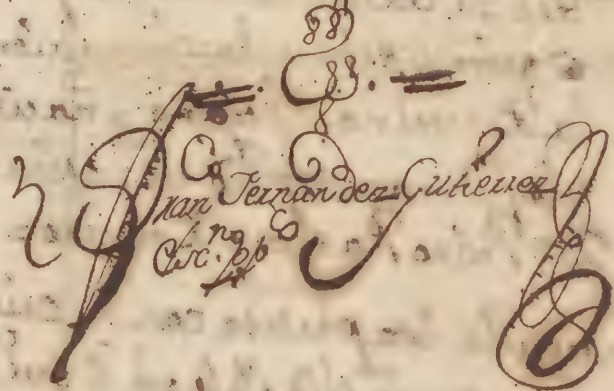 Fran.co Fernandez Gutierrez
Esc.no pp.co